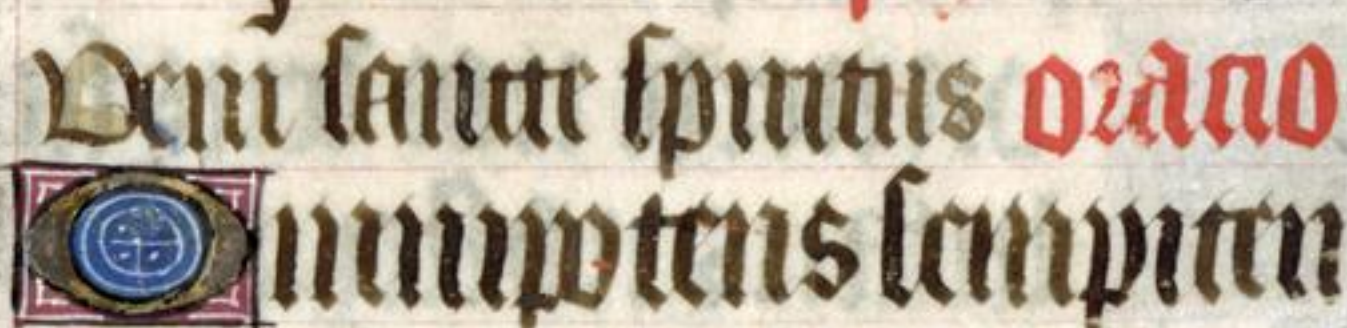 Veni sancte spiritus oratio
Omnipotens sempitern